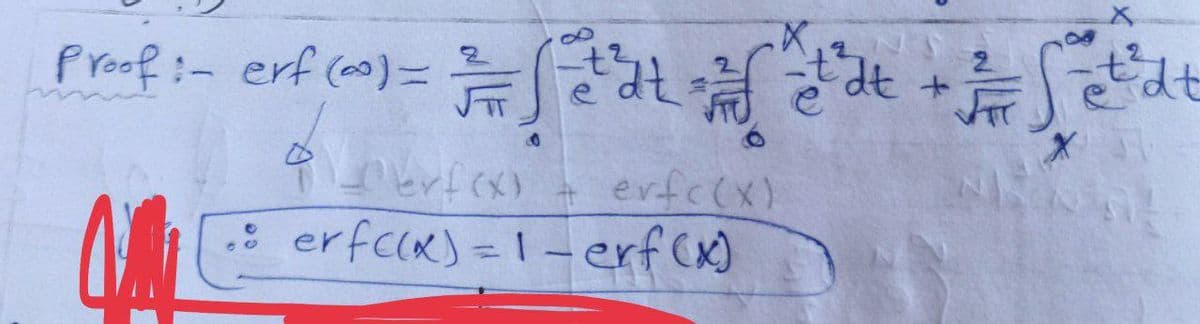 Proof :- erf (∞) = 2/√π ∫₀^∞ e^-t² dt = 2/√π ∫₀^x e^-t² dt + 2/√π ∫ₓ^∞ e^-t² dt
1 = erf(x) + erfc(x)
∴ erfc(x) = 1 - erf(x)